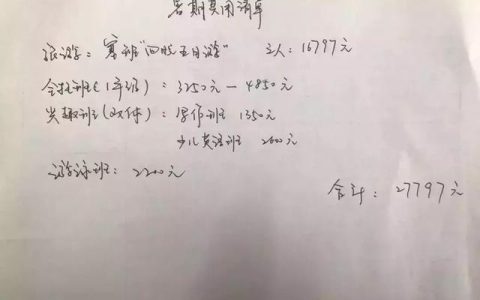 暑期费用清单
旅游：塞班"四晚五日游" 三人：16797元
全托班(1年级)：3250元—4850元
兴趣班(改件)：写作班 1350元
少儿英语班 2600元
游泳班：2200元
合计：27797元